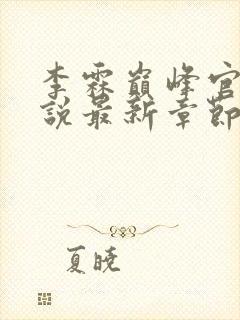 李霖巔峰官
說最新章節
夏曉